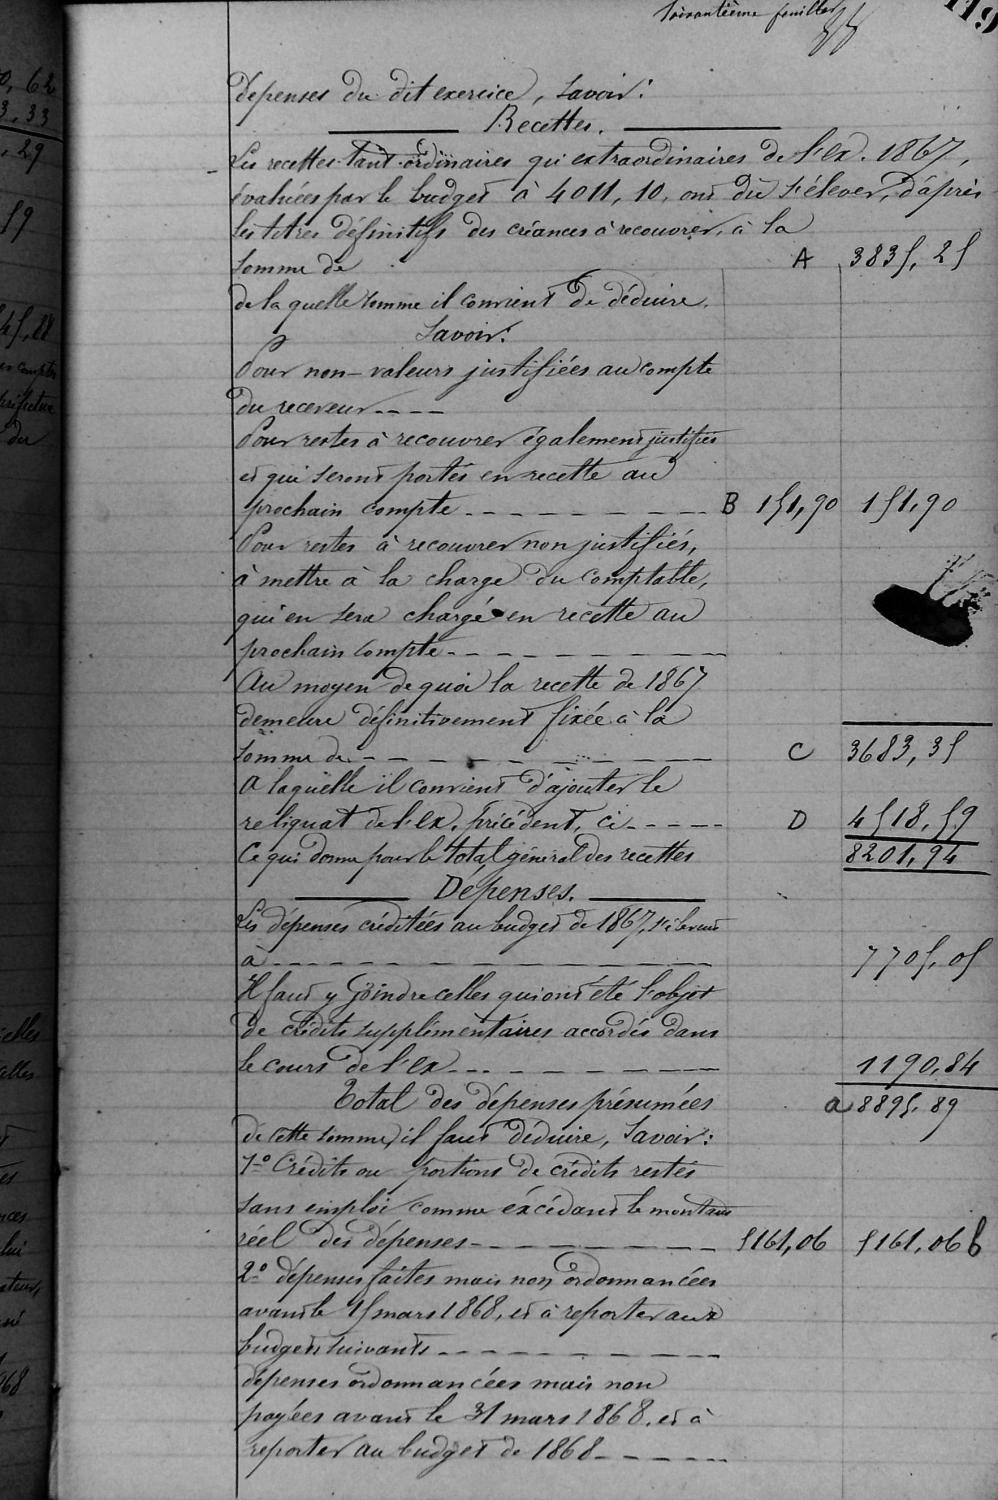 Soixantième feuillet
119
dépenses du dit exercice, Savoir:
Recettes.
Les recettes tant ordinaires qu'extraordinaires de l'ex. 1867,
évaluées par le budget à 4011,10, ont dû s'élever, d'après
les titres définitifs des créances à recouvrer, à la
somme de A 3835,25
de laquelle somme il convient de déduire,
Savoir:
Pour non-valeurs justifiées au compte
du receveur----
Pour restes à recouvrer également justifiés
et qui seront portés en recette au
prochain compte --------- B 151,90 151,90
Pour restes à recouvrer non justifiés,
à mettre à la charge du comptable,
qui en sera chargé en recette au
prochain compte ---------
Au moyen de quoi la recette de 1867
demeure définitivement fixée à la
somme de --------- C 3683,35
A laquelle il convient d'ajouter le
reliquat de l'ex. précédent, ci ----- D 4518,59
Ce qui donne pour le total général des recettes 8201,94
Dépenses.
Les dépenses créditées au budget de 1867, s'élèvent
à --------- 7705,05
Il faut y joindre celles qui ont été l'objet
de crédits supplémentaires accordés dans
le cours de l'ex --------- 1190,84
Total des dépenses présumées a 8895,89
de cette somme, il faut déduire, Savoir:
1º Crédits ou portions de crédits restés
sans emploi comme excédant le montant
réel des dépenses --------- 5161,06 5161,06 b
2º dépenses faites mais non ordonnancées
avant le 15 mars 1868, et à reporter aux
budgets suivants ---------
dépenses ordonnancées mais non
payées avant le 31 mars 1868, et à
reporter au budget de 1868 -----